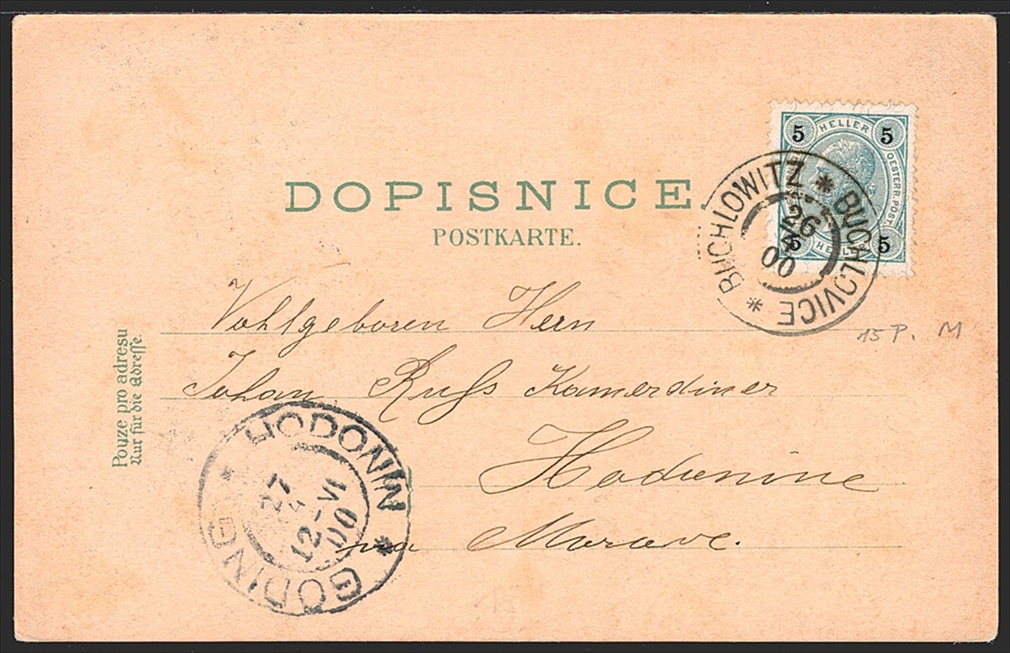 DOPISNICE.
POSTKARTE.
5 HELLER 5
OESTERR. POST.
5 HELLER 5
* BUCHLOWITZ * BUCHLOVICE
26
00
Vohlgeboren Hern
Johan Rufs Kamerdiner
Hodonine
na Morave.
15 P. M
Pouze pro adresu
Nur für die Adresse.
HODONIN * GÖDING *
27
4
12-VI
00